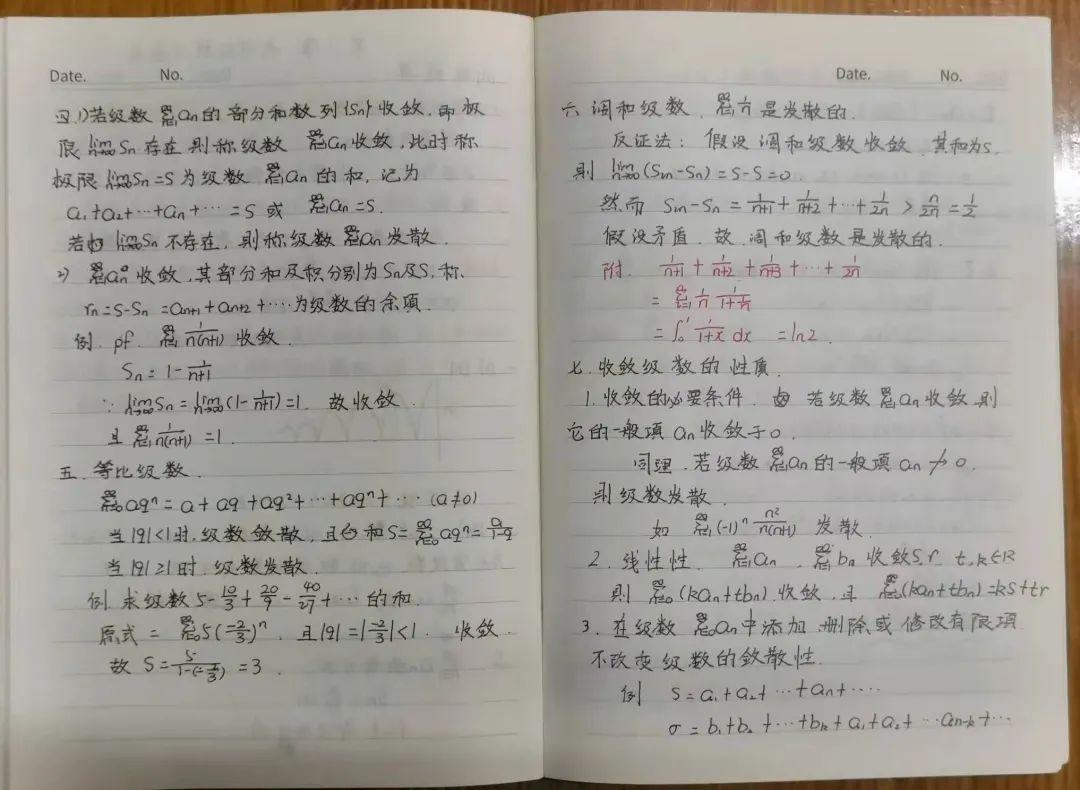 Date. No.
四.1)若级数 ∑_{n=1}^∞ an 的部分和数列{Sn}收敛,即极
限 lim_{n→∞} Sn 存在则称级数 ∑_{n=1}^∞ an 收敛,此时称
极限 lim_{n→∞} Sn = S 为级数 ∑_{n=1}^∞ an 的和,记为
a₁+a₂+…+an+… = S 或 ∑_{n=1}^∞ an = S.
若 lim_{n→∞} Sn 不存在,则称级数 ∑_{n=1}^∞ an 发散.
2) ∑_{n=1}^∞ an 收敛,其部分和及积分别为 Sn 及 S,称
rn = S-Sn = an+1 + an+2 + … 为级数的余项.
例. pf. ∑_{n=1}^∞ 1/n(n+1) 收敛.
Sn = 1 - 1/(n+1)
∵ lim_{n→∞} Sn = lim_{n→∞} (1 - 1/(n+1)) = 1. 故收敛.
且 ∑_{n=1}^∞ 1/n(n+1) = 1.
五. 等比级数.
∑_{n=0}^∞ aqⁿ = a + aq + aq² + … + aqⁿ + … (a≠0)
当 |q|<1 时,级数敛散,且 和 S = ∑_{n=0}^∞ aqⁿ = a/(1-q)
当 |q|≥1 时,级数发散.
例 求级数 5 - 10/3 + 20/9 - 40/27 + … 的和.
原式 = ∑_{n=0}^∞ 5(-2/3)ⁿ. 且 |q| = |-2/3| < 1. 收敛.
故 S = 5/(1-(-2/3)) = 3.
Date. No.
六 调和级数. ∑_{n=1}^∞ 1/n 是发散的.
反证法: 假设调和级数收敛.其和为S.
则 lim_{n→∞} (S2n - Sn) = S - S = 0.
然而 S2n - Sn = 1/(n+1) + 1/(n+2) + … + 1/2n > n/2n = 1/2
假设矛盾.故.调和级数是发散的.
附. 1/(n+1) + 1/(n+2) + 1/(n+3) + … + 1/2n
= ∑_{i=1}^∞ 1/n 1/(1+i/n)
= ∫₀¹ 1/(1+x) dx = ln2.
七.收敛级数的性质.
1.收敛的必要条件. 若级数 ∑_{n=1}^∞ an 收敛则
它的一般项 an 收敛于0.
同理.若级数 ∑_{n=1}^∞ an 的一般项 an ↛ 0.
则级数发散.
如 ∑_{n=1}^∞ (-1)ⁿ n²/n(n+1) 发散.
2. 线性性. ∑_{n=1}^∞ an , ∑_{n=1}^∞ bn 收敛 S.r. t,k∈R
则 ∑_{n=0}^∞ (kan+tbn) 收敛.且 ∑_{n=0}^∞ (kan+tbn) = kS+tr
3. 在级数 ∑_{n=0}^∞ an 中添加.删除或修改有限项
不改变级数的敛散性.
例 S = a₁+a₂+…+an+….
σ = b₁+b₂+…+bk+a₁+a₂+…an-k+…